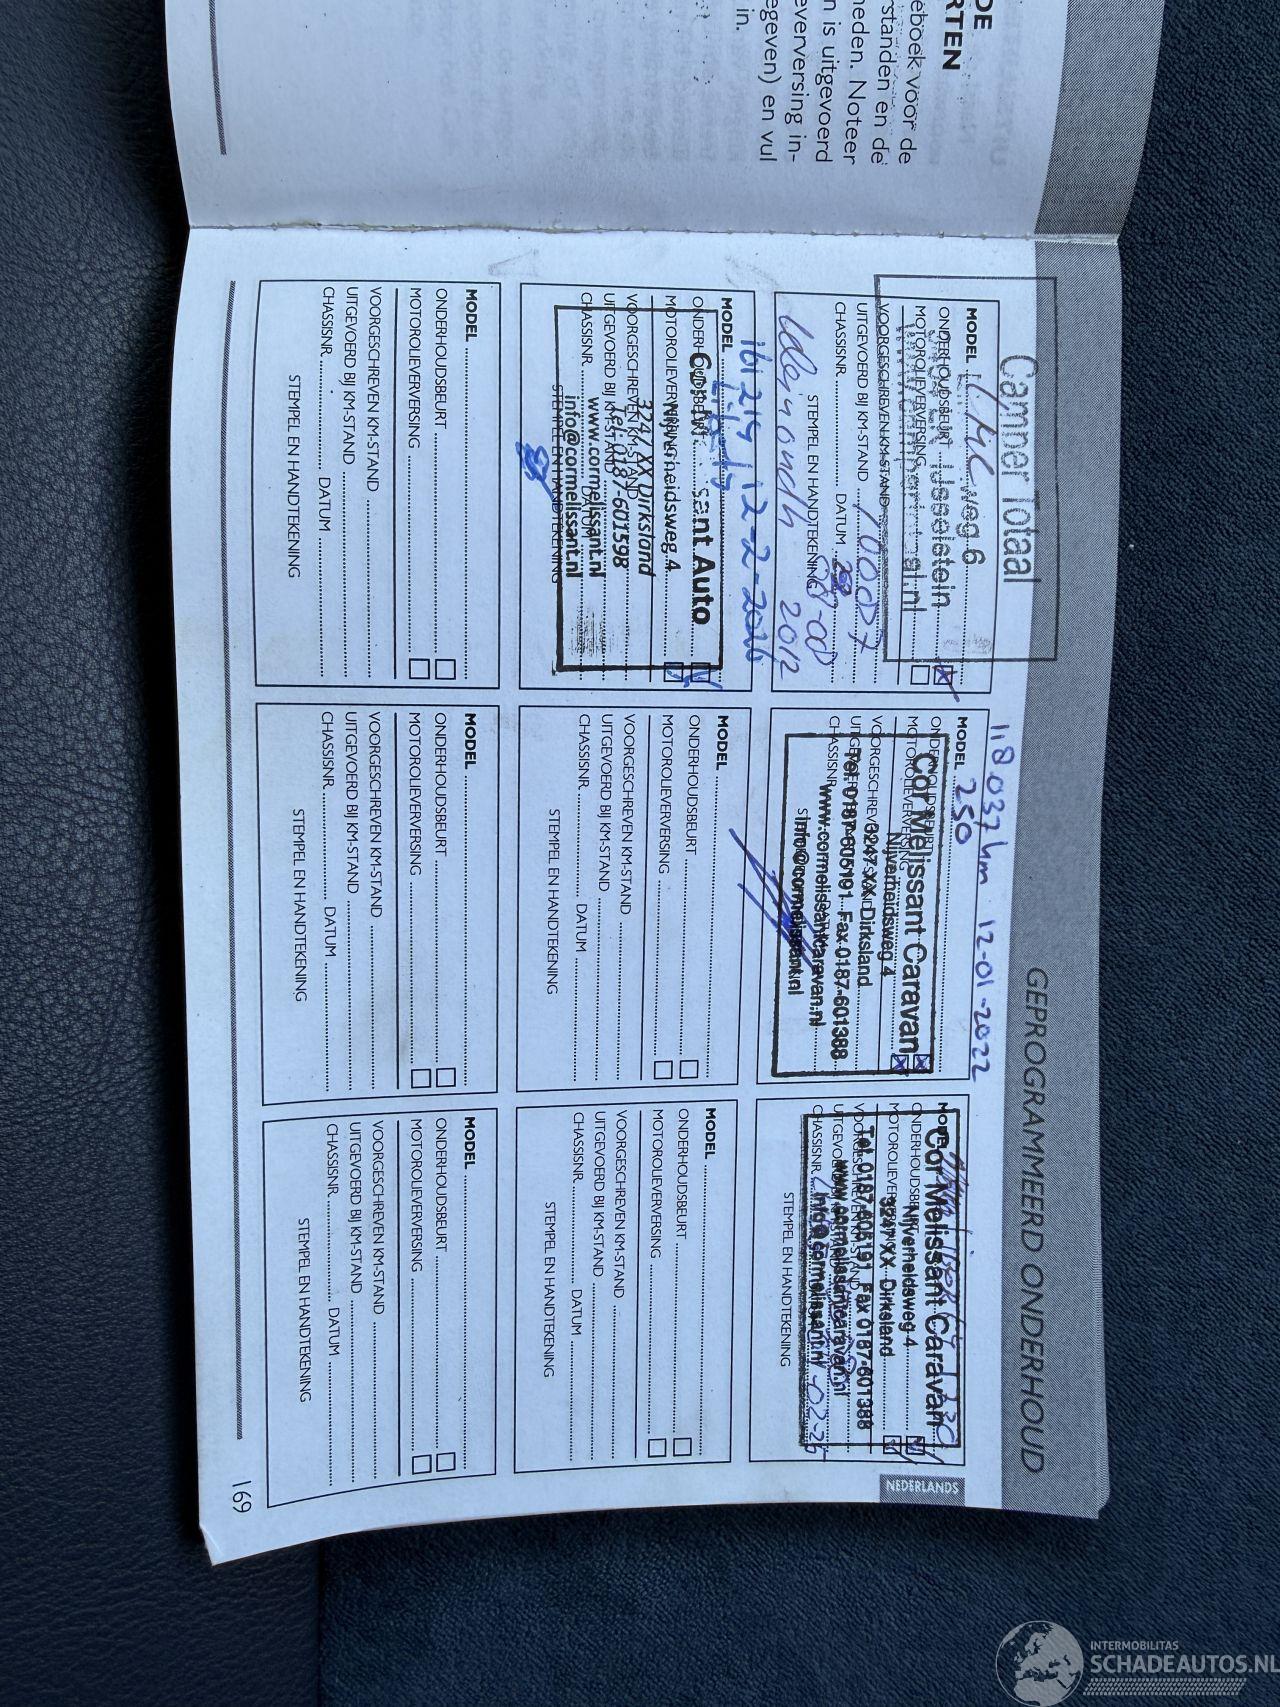 DE
RTEN
eboek voor de
rstanden en de
neden. Noteer
n is uitgevoerd
everversing in-
egeven) en vul
in.
GEPROGRAMMEERD ONDERHOUD
NEDERLANDS
Camper Totaal
weg 6
IJsselstein
MODEL
ONDERHOUDSBEURT
MOTOROLIEVERVERSING
VOORGESCHREVEN KM-STAND
UITGEVOERD BIJ KM-STAND
CHASSISNR. DATUM
STEMPEL EN HANDTEKENING
2012
118.037 km 12-01-2022
MODEL
250
ONDERHOUDSBEURT
MOTOROLIEVERVERSING
VOORGESCHREVEN KM-STAND
CHASSISNR.
Cor Melissant Caravan
Nijverheidsweg 4
3247 XX Dirksland
Tel. 0187-605191 Fax 0187-601388
www.cormelissantcaravan.nl
info@cormelissant.nl
MODEL
CHASSISNR.
STEMPEL EN HANDTEKENING
Cor Melissant Caravan
Nijverheidsweg 4
3247 XX Dirksland
Tel. 0187-605191 Fax 0187-601388
www.cormelissantcaravan.nl
info@cormelissant.nl
MODEL
161219 12-2-2026
MOTOROLIEVERVERSING
VOORGESCHREVEN KM-STAND
UITGEVOERD BIJ KM-STAND
CHASSISNR.
STEMPEL EN HANDTEKENING
sant Auto
Nijverheidsweg 4
Dirksland
Tel: 0187-601598
www.cormelissant.nl
info@cormelissant.nl
MODEL
ONDERHOUDSBEURT
MOTOROLIEVERVERSING
VOORGESCHREVEN KM-STAND
UITGEVOERD BIJ KM-STAND
CHASSISNR. DATUM
STEMPEL EN HANDTEKENING
MODEL
ONDERHOUDSBEURT
MOTOROLIEVERVERSING
VOORGESCHREVEN KM-STAND
UITGEVOERD BIJ KM-STAND
CHASSISNR. DATUM
STEMPEL EN HANDTEKENING
MODEL
ONDERHOUDSBEURT
MOTOROLIEVERVERSING
VOORGESCHREVEN KM-STAND
UITGEVOERD BIJ KM-STAND
CHASSISNR. DATUM
STEMPEL EN HANDTEKENING
MODEL
ONDERHOUDSBEURT
MOTOROLIEVERVERSING
VOORGESCHREVEN KM-STAND
UITGEVOERD BIJ KM-STAND
CHASSISNR. DATUM
STEMPEL EN HANDTEKENING
MODEL
ONDERHOUDSBEURT
MOTOROLIEVERVERSING
VOORGESCHREVEN KM-STAND
UITGEVOERD BIJ KM-STAND
CHASSISNR. DATUM
STEMPEL EN HANDTEKENING
169
INTERMOBILITAS
SCHADEAUTOS.NL